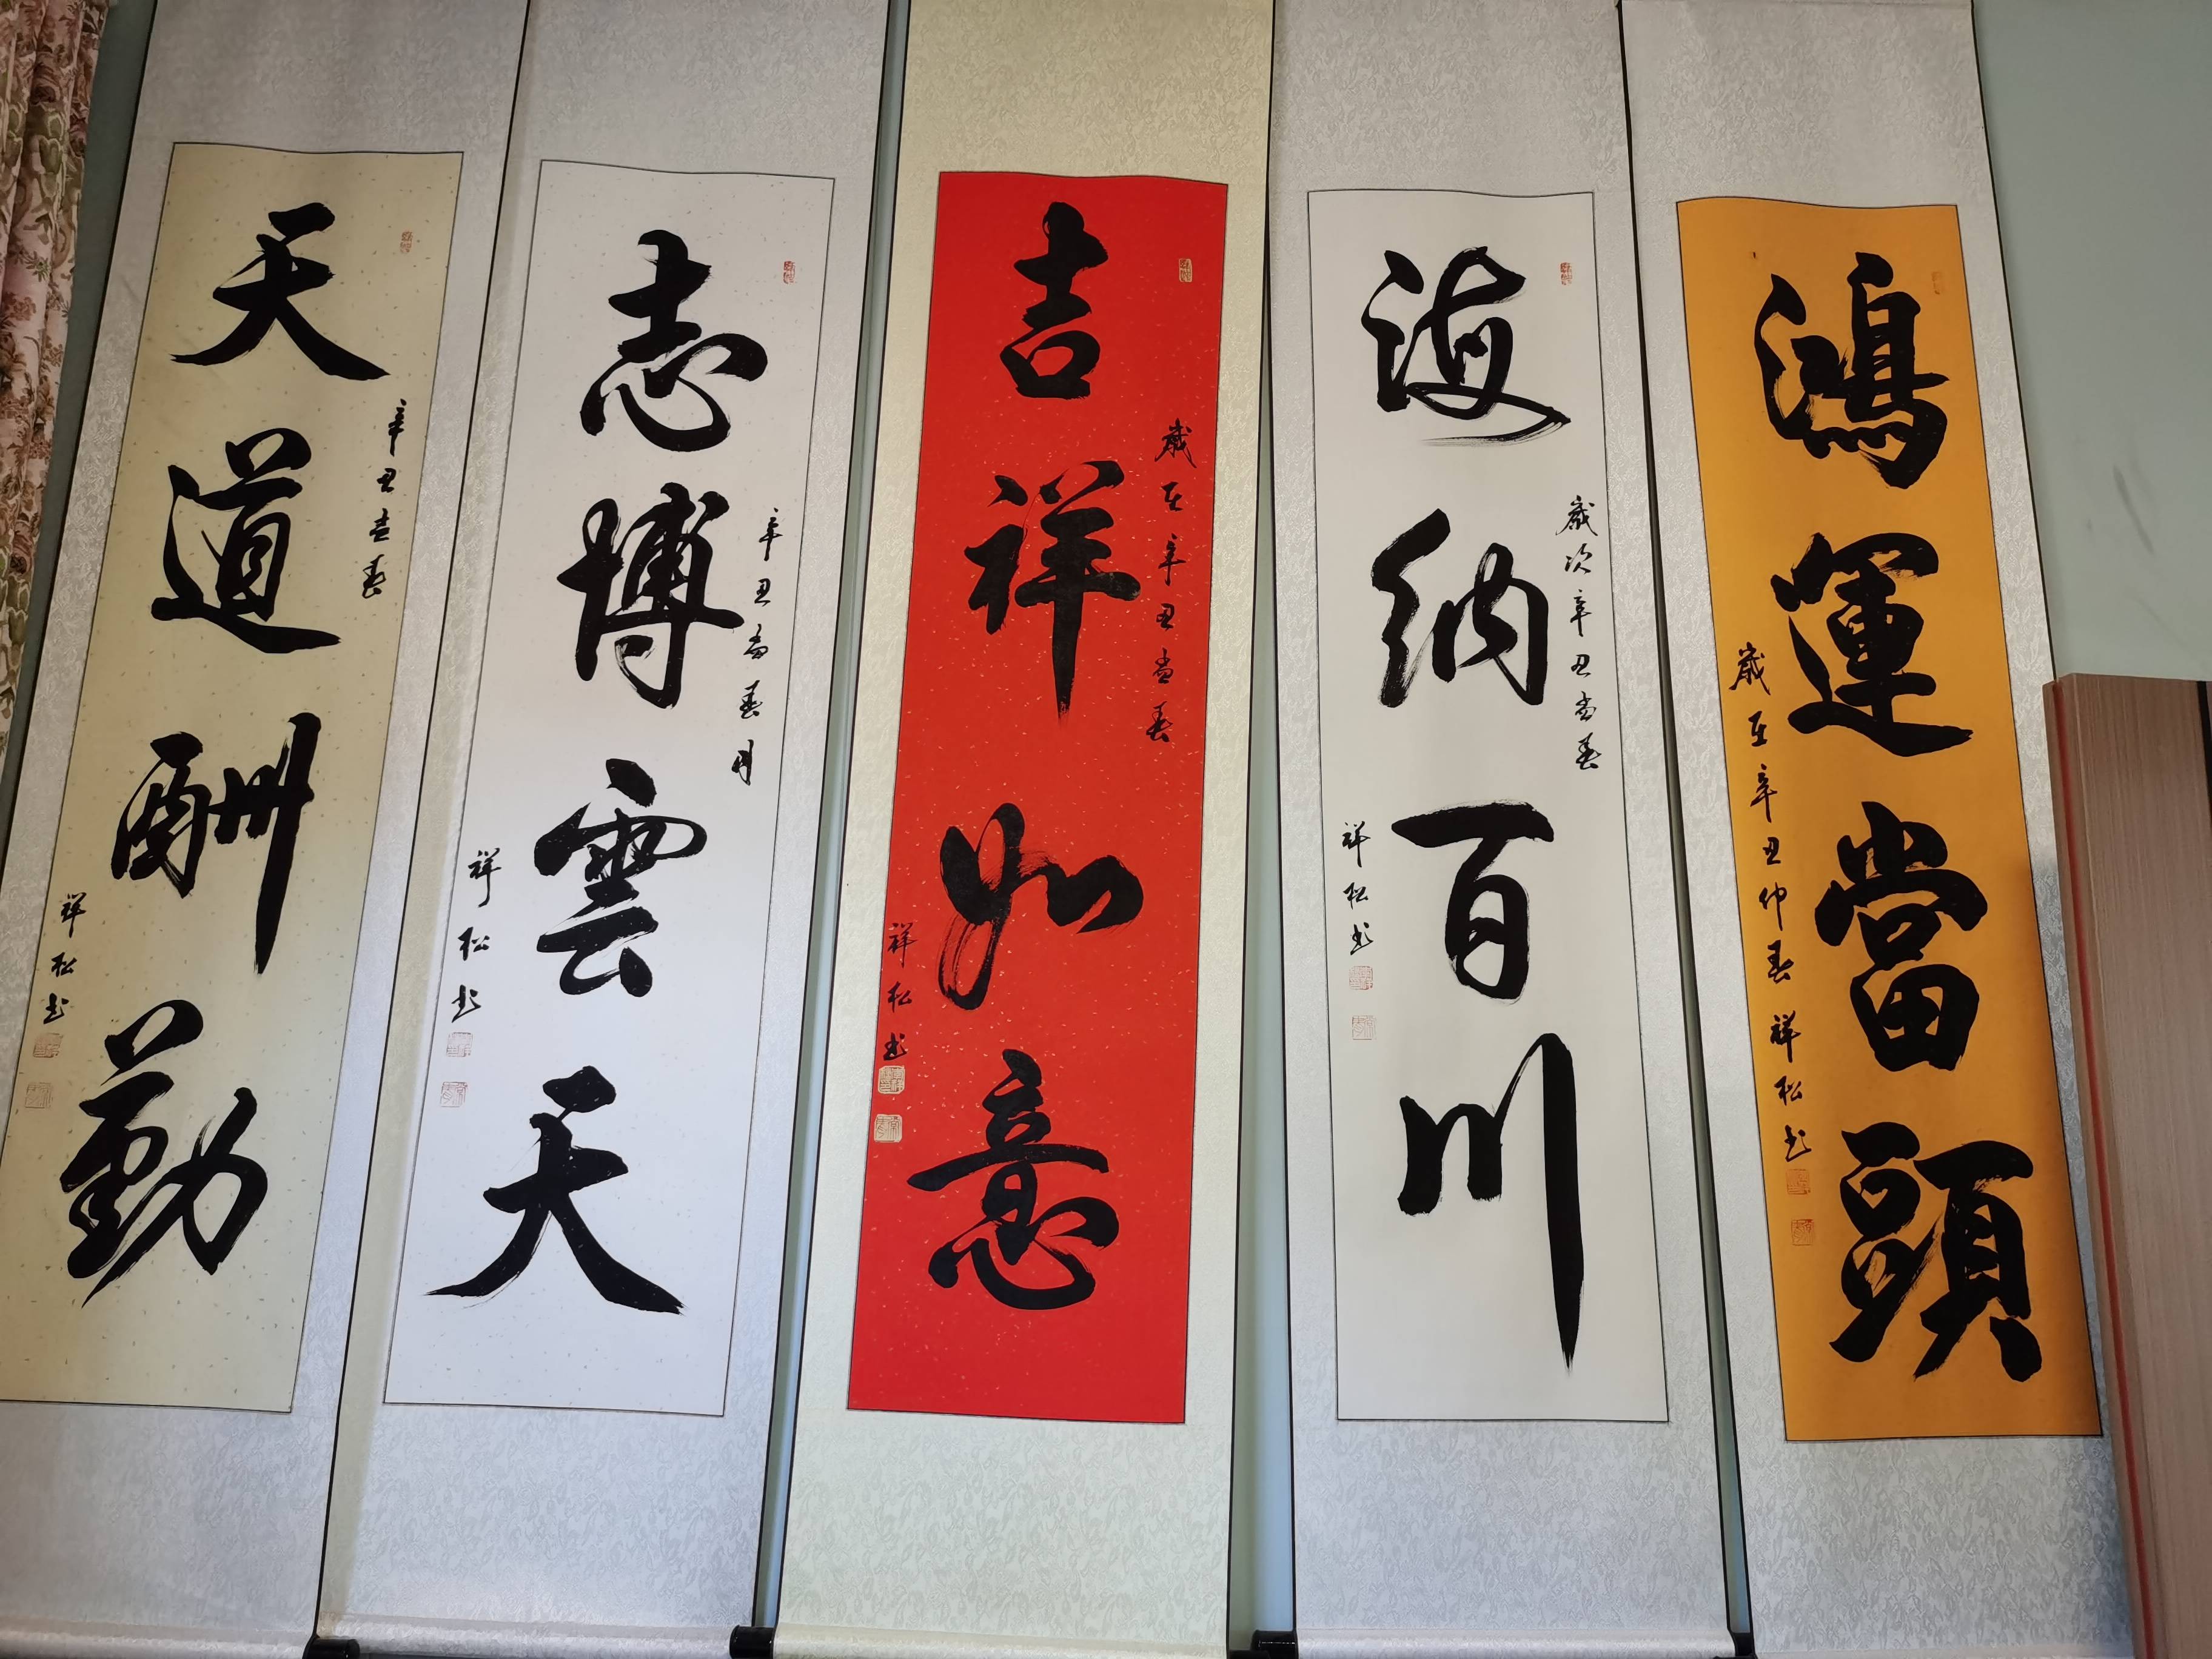 鴻運當頭
歲在辛丑仲春祥松书
海納百川
歲次辛丑孟春
祥松书
吉祥如意
歲在辛丑孟春
祥松书
志博雲天
辛丑孟春月
祥松书
天道酬勤
辛丑孟春
祥松书